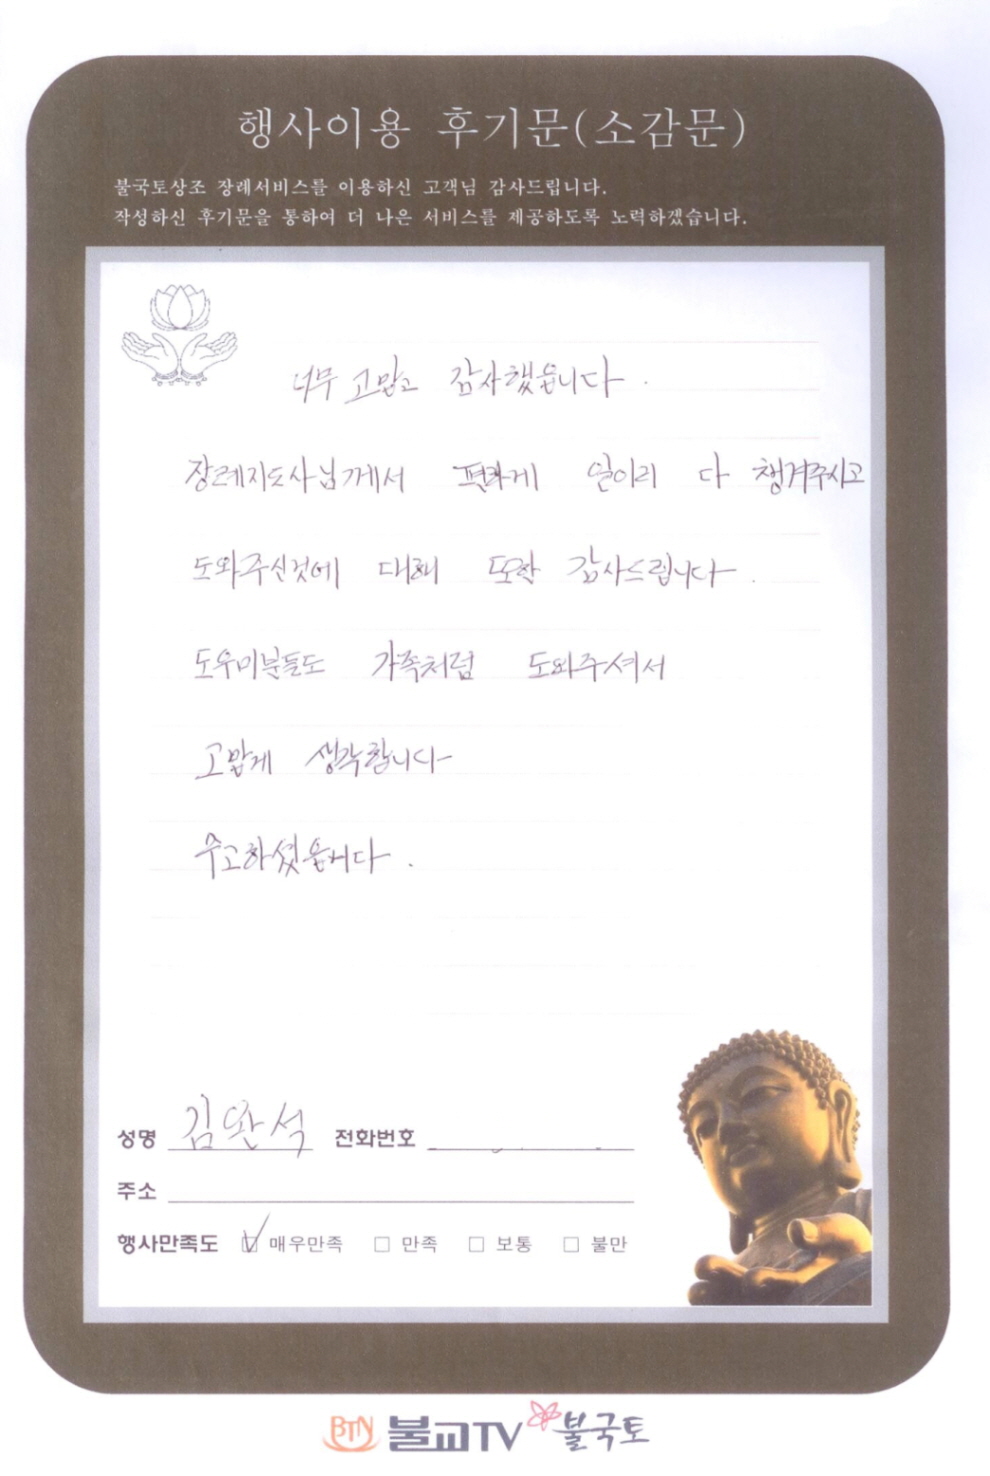 행사이용 후기문(소감문)
불국토상조 장례서비스를 이용하신 고객님 감사드립니다.
작성하신 후기문을 통하여 더 나은 서비스를 제공하도록 노력하겠습니다.
너무 고맙고 감사했습니다.
장례지도사님께서 편하게 일이리 다 챙겨주시고
도와주신것에 대해 또한 감사드립니다.
도우미분들도 가족처럼 도와주셔서
고맙게 생각합니다
수고하셨습니다.
성명 김완석 전화번호
주소
행사만족도 ☑ 매우만족 □ 만족 □ 보통 □ 불만
BTN 불교TV 불국토